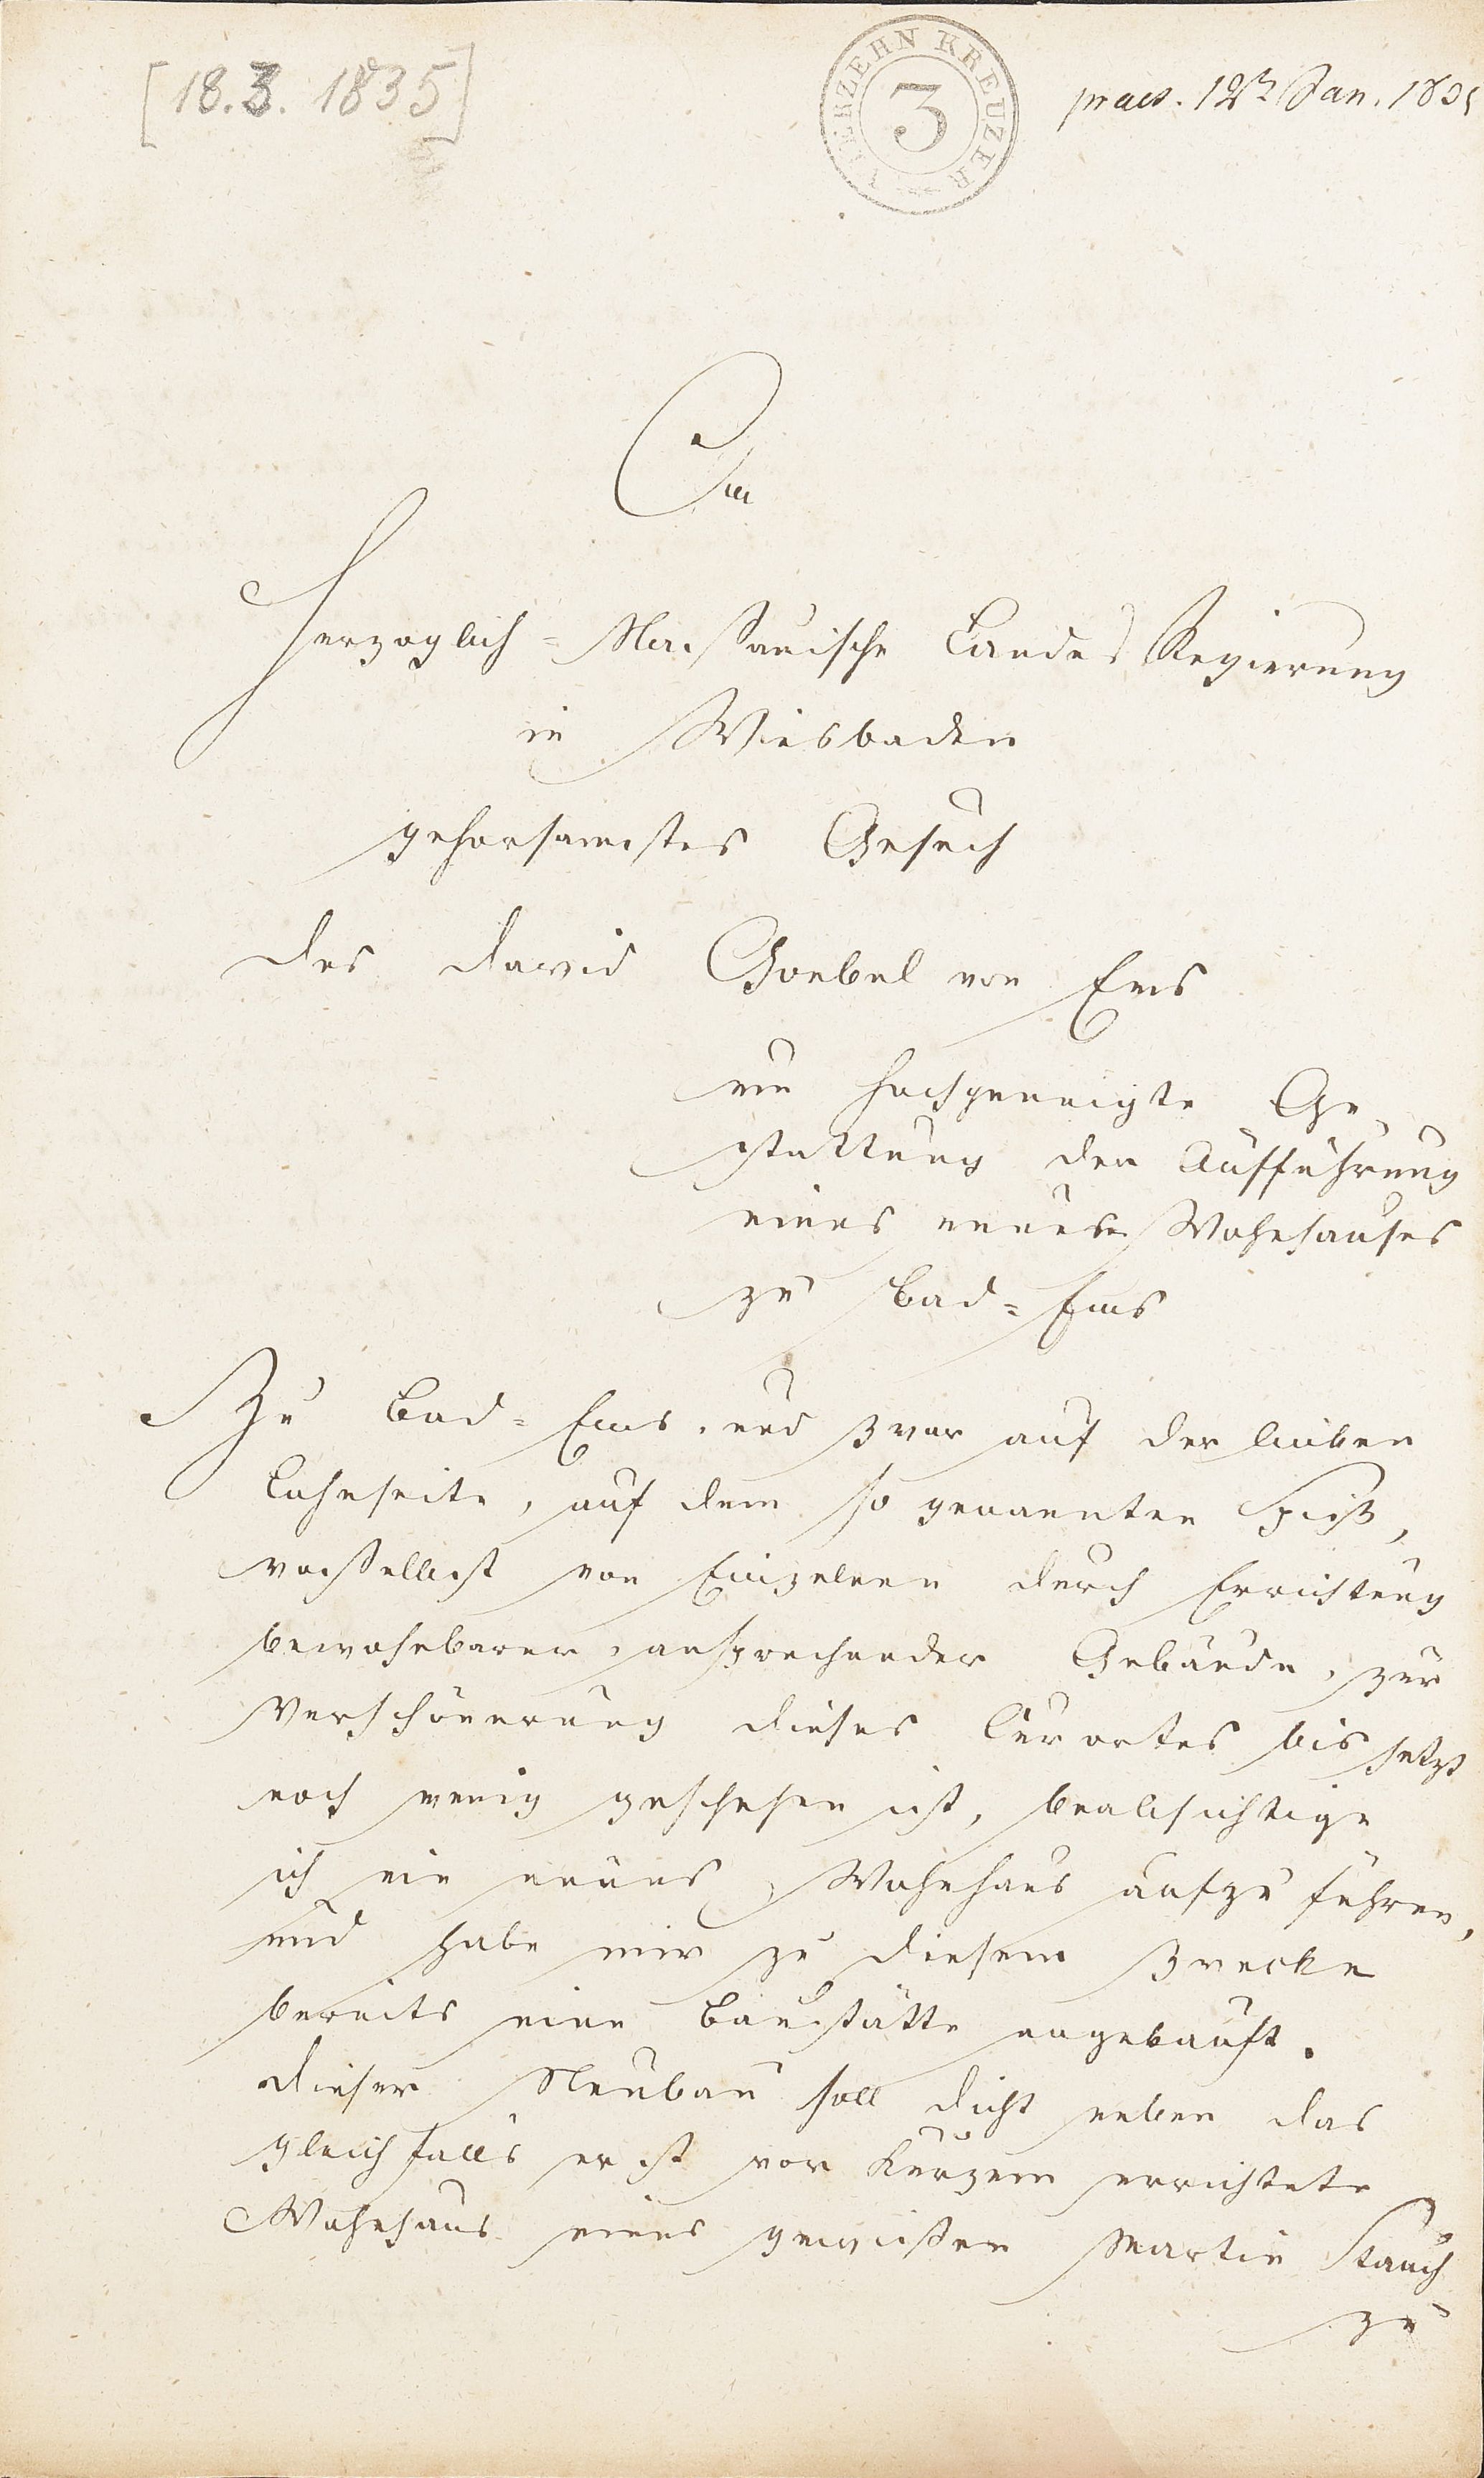 [18.3. 1835]
VIERZEHN KREUZER
3
praes. 12t Jan. 183
An
Herzoglich-Nassauische Landes Regierung
in Wiesbaden
gehorsamstes Gesuch
des David Goebel von Ems
um hochgeneigte Ge-
stattung der Aufführung
eines neuen Wohnhauses
zu Bad-Ems
Zu Bad-Ems, und zwar auf der linken
Lahnseite, auf dem so genannten Spieß,
woselbst von Einzelnen durch Errichtung
bewohnbarer, ansprechender Gebäude, zur
Verschönerung dieses Curortes bis jetzt
noch wenig geschehen ist, beabsichtige
ich ein neues Wohnhaus aufzuführen,
und habe mir zu diesem Zwecke
bereits eine Baustätte angekauft.
Dieser Neubau soll dicht neben das
gleichfalls erst vor Kurzem errichtete
Wohnhaus eines gewißen Martin Stauch
zu